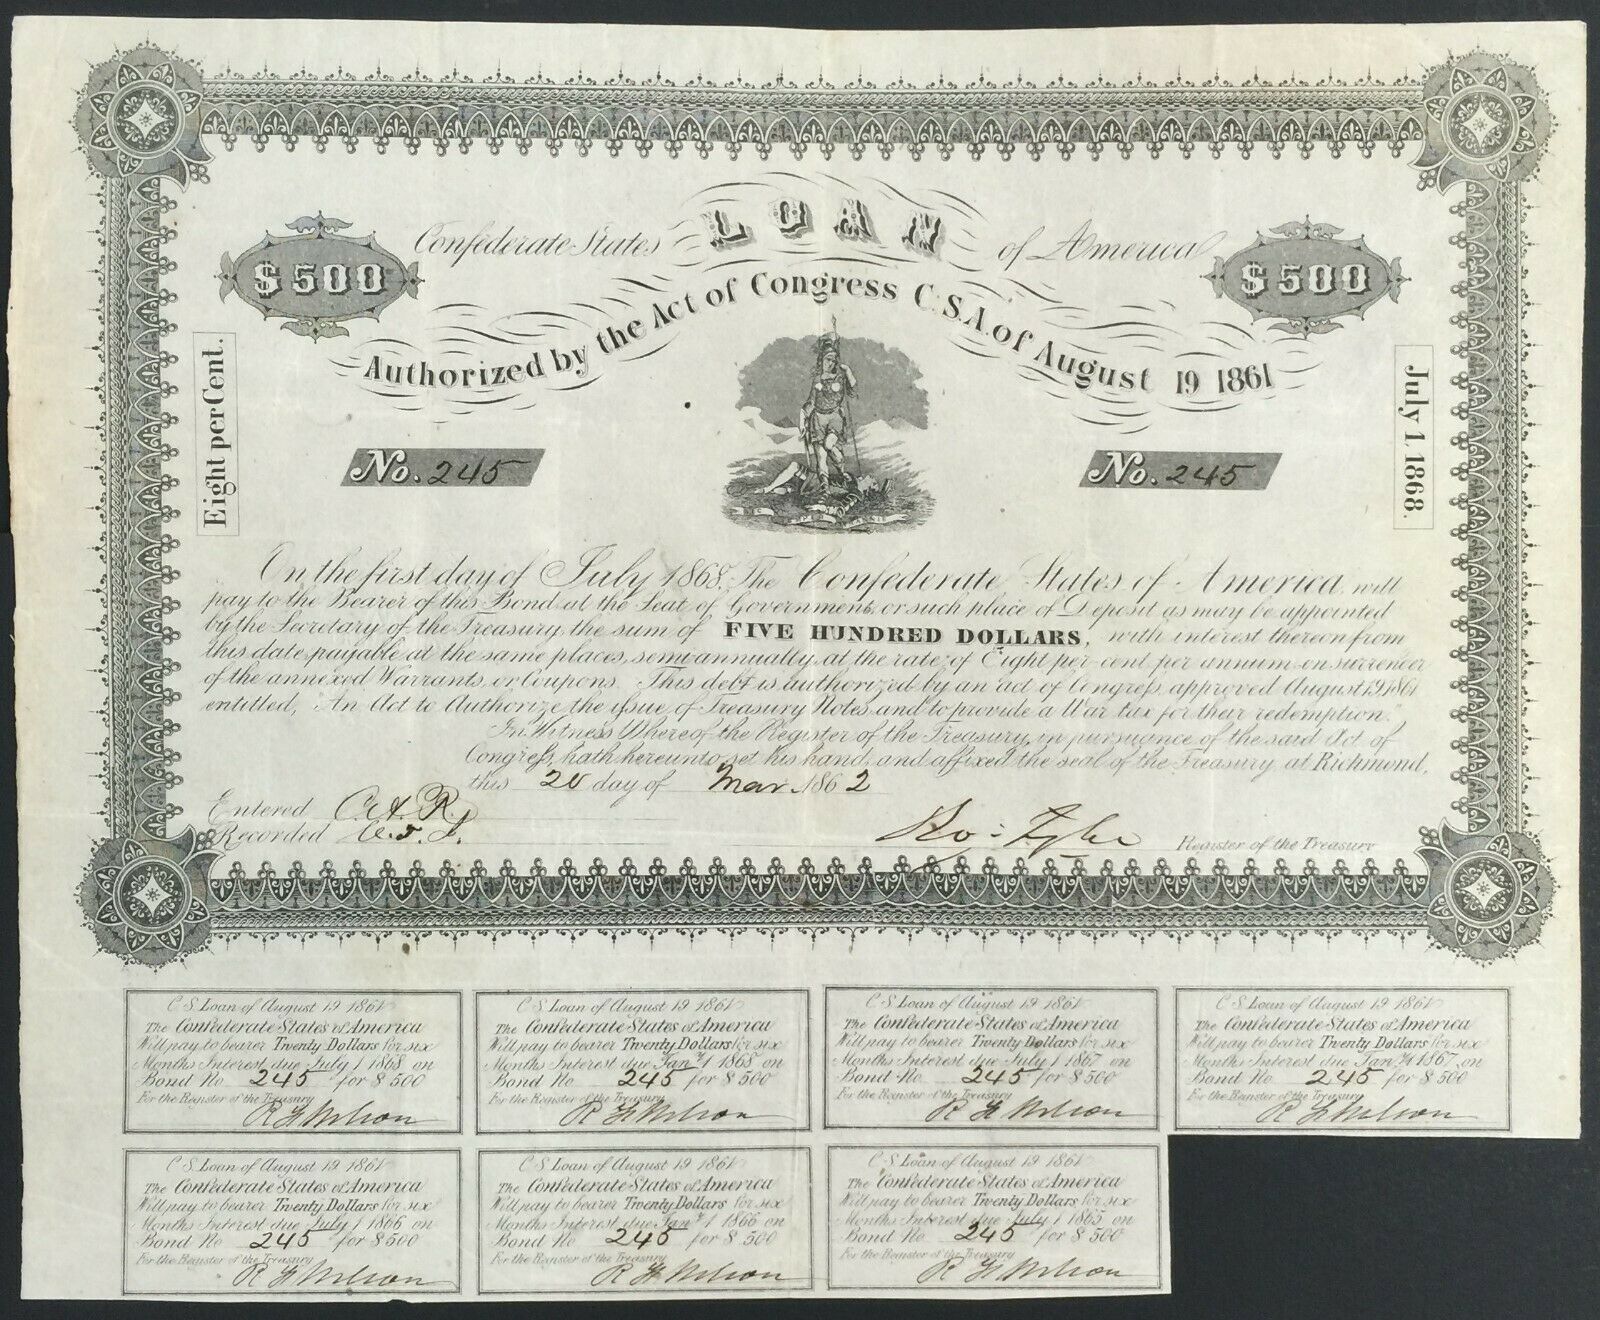 Confederate States LOAN of America
$500
$500
Authorized by the Act of Congress C.S.A. of August 19 1861
Eight per Cent.
July 1, 1868.
No. 245
No. 245
On the first day of July 1868, The Confederate States of America will
pay to the Bearer of this Bond, at the Seat of Government, or such place of Deposit as may be appointed
by the Secretary of the Treasury, the sum of FIVE HUNDRED DOLLARS, with interest thereon from
this date, payable at the same places, semi annually, at the rate of Eight per cent per annum on surrender
of the annexed Warrants, or Coupons. This debt is authorized by an act of Congress, approved August 19, 1861
entitled, "An Act to Authorize the issue of Treasury Notes, and to provide a War tax for their redemption."
In Witness Whereof the Register of the Treasury, in pursuance of the said Act of
Congress, hath hereunto set his hand, and affixed the seal of the Treasury, at Richmond,
this 20 day of Mar 1862
Entered C.A.R.
Recorded
Ro: Tyler Register of the Treasury
C.S. Loan of August 19 1861
The Confederate States of America
Will pay to bearer Twenty Dollars for six
Months Interest due July 1 1868 on
Bond No 245 for $500
For the Register of the Treasury
R H Wilson
C.S. Loan of August 19 1861
The Confederate States of America
Will pay to bearer Twenty Dollars for six
Months Interest due Jany 1 1868 on
Bond No 245 for $500
For the Register of the Treasury
R H Wilson
C.S. Loan of August 19 1861
The Confederate States of America
Will pay to bearer Twenty Dollars for six
Months Interest due July 1 1867 on
Bond No 245 for $500
For the Register of the Treasury
R H Wilson
C.S. Loan of August 19 1861
The Confederate States of America
Will pay to bearer Twenty Dollars for six
Months Interest due Jany 1 1867 on
Bond No 245 for $500
For the Register of the Treasury
R H Wilson
C.S. Loan of August 19 1861
The Confederate States of America
Will pay to bearer Twenty Dollars for six
Months Interest due July 1 1866 on
Bond No 245 for $500
For the Register of the Treasury
R H Wilson
C.S. Loan of August 19 1861
The Confederate States of America
Will pay to bearer Twenty Dollars for six
Months Interest due Jany 1 1866 on
Bond No 245 for $500
For the Register of the Treasury
R H Wilson
C.S. Loan of August 19 1861
The Confederate States of America
Will pay to bearer Twenty Dollars for six
Months Interest due July 1 1865 on
Bond No 245 for $500
For the Register of the Treasury
R H Wilson